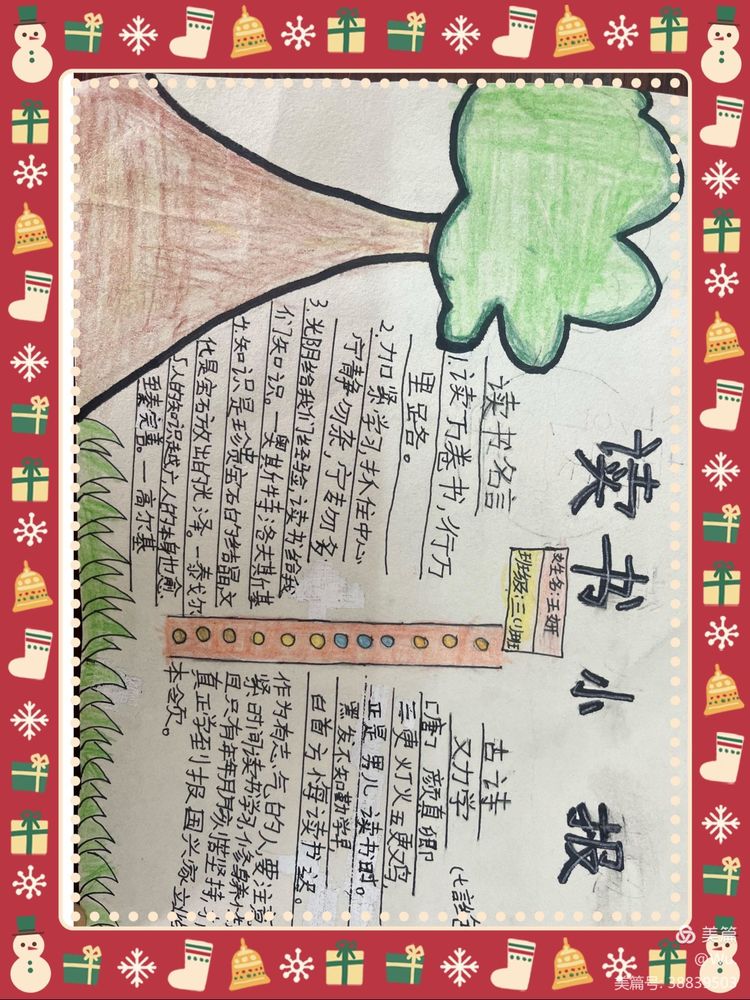 读书小报
姓名:王妍
班级:三(1)班
读书名言
1、读万卷书,行万
里路。
2.加紧学习,抓住中心
宁静勿杂,宁专勿多
3.光阴给我们经验,读书给我
们知识。一奥斯特洛夫斯基
4.知识是珍贵宝石的结晶,文
化是宝石放出的光泽。一泰戈尔
人的知识越广,人的本身也愈
臻完善。一高尔基
古诗
又力学
[唐] 颜真卿
三更灯火五更鸡,
正是男儿读书时。
黑发不知勤学早,
白首方悔读书迟。
作为有志气的人,要注意
紧时间读书学习,修身养性
且只有年年月月刻苦坚持,
真正学到报国兴家立
本领。
美篇
美篇号: 38839503